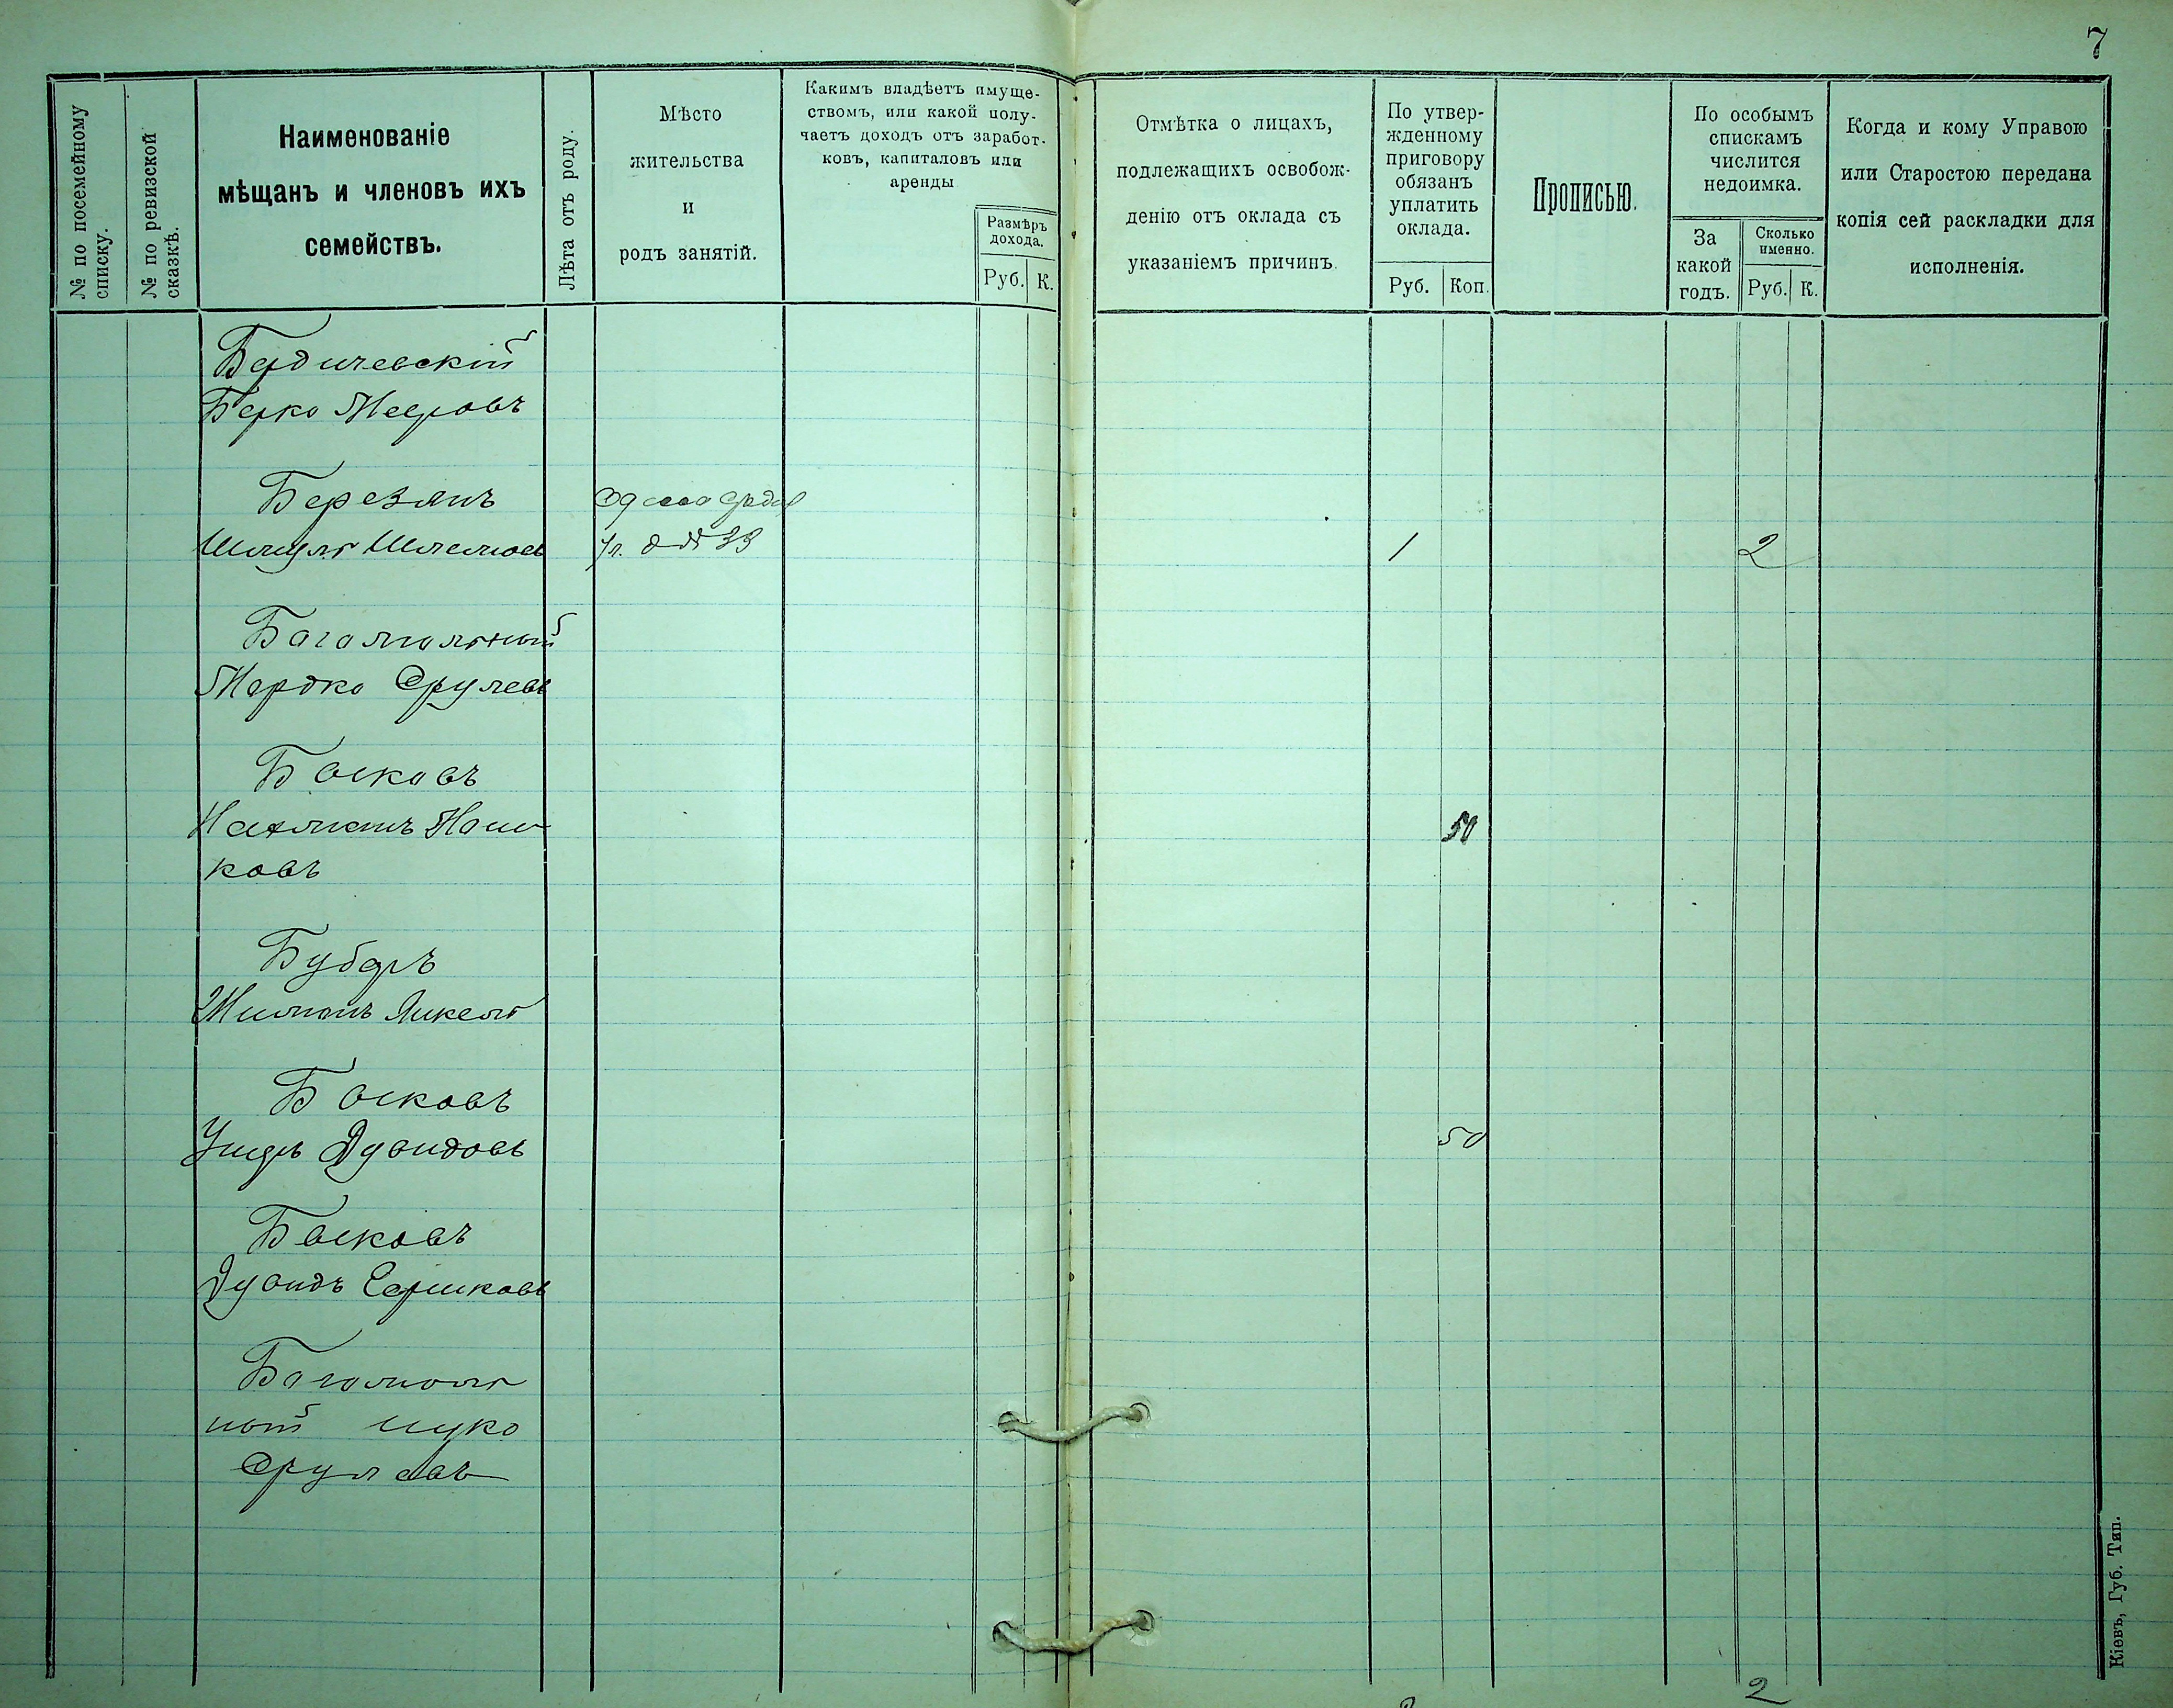 7
№ по посемейному
списку.
№ по ревизской
сказкѣ.
Наименованіе
мѣщанъ и членовъ ихъ
семействъ.
Лѣта отъ роду.
Мѣсто
жительства
и
родъ занятій.
Какимъ владѣетъ имуще-
ствомъ, или какой полу-
чаетъ доходъ отъ заработ-
ковъ, капиталовъ или
аренды
Размѣръ
дохода.
Руб. К.
Отмѣтка о лицахъ,
подлежащихъ освобож-
денію отъ оклада съ
указаніемъ причинъ.
По утвер-
жденному
приговору
обязанъ
уплатить
оклада.
Руб. Коп.
Прописью.
По особымъ
спискамъ
числится
недоимка.
За
какой
годъ.
Сколько
именно.
Руб. К.
Когда и кому Управою
или Старостою передана
копія сей раскладки для
исполненія.
Бердичевскій
Берко Мееровъ
Березянъ
Одесса
Шмуль Шлемов
ул. д № 33
1
2
Багамольный
Мордко Срулевъ
Басковъ
Нахманъ Нац
50
ковъ
Буберъ
Басковъ
Ушеръ Дувидовъ
50
Басковъ
Дувидъ Гершковъ
Багамоль
ный
Срулевъ
2
Кіевъ, Губ. Тип.